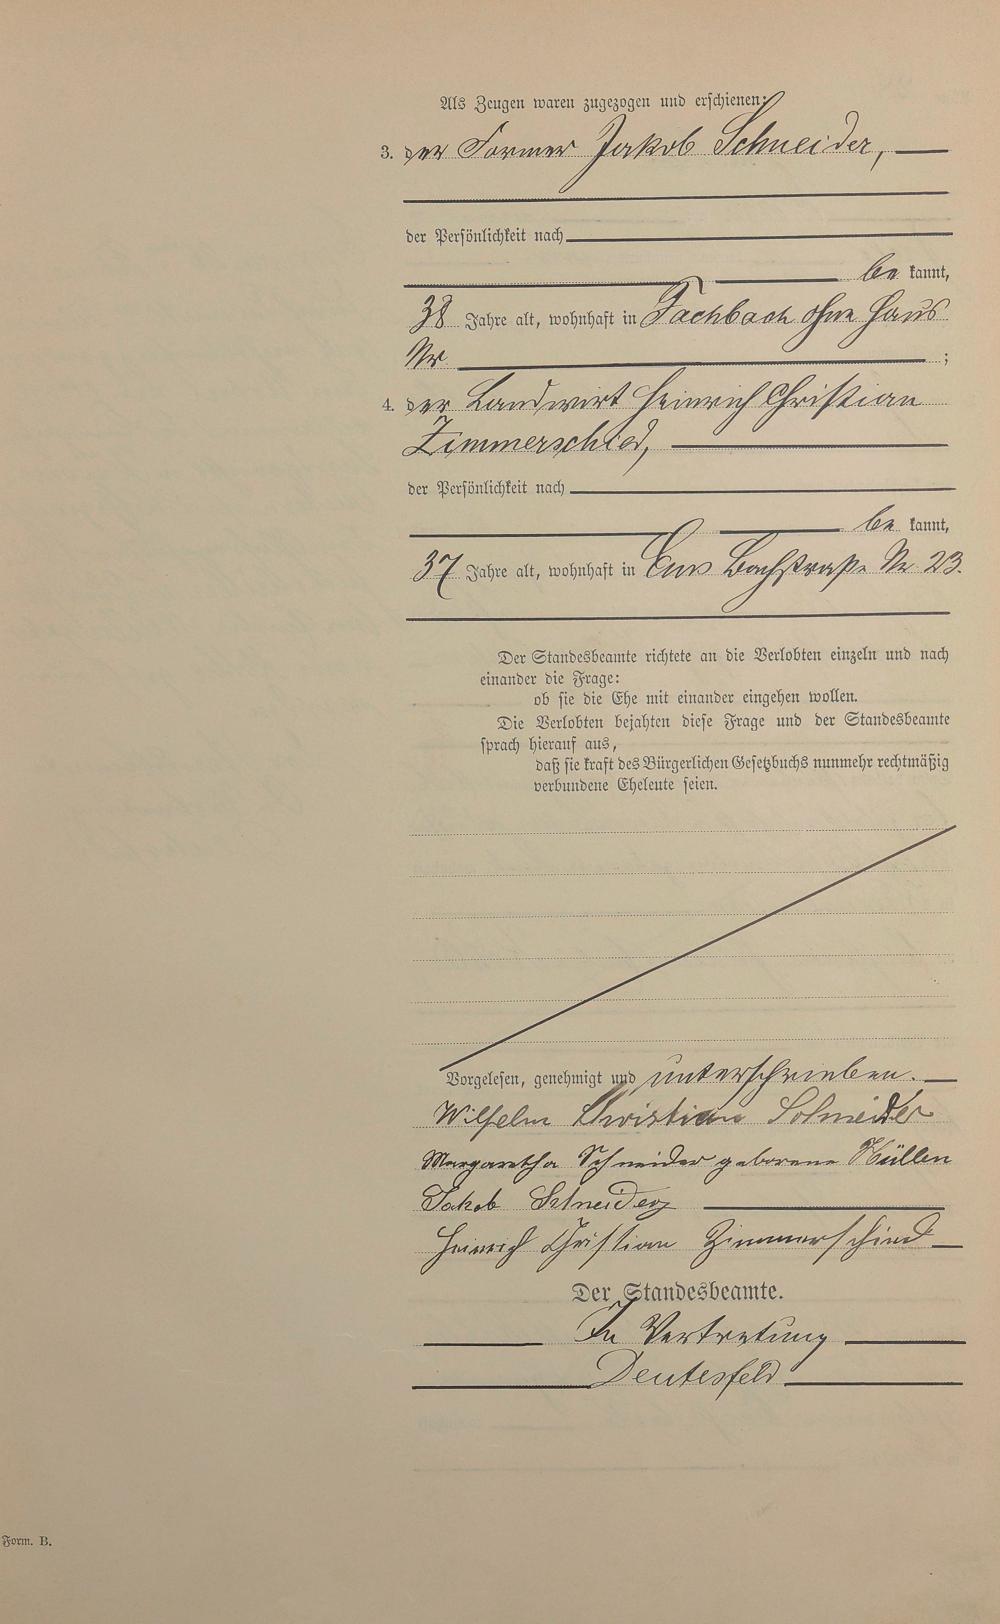 Als Zeugen waren zugezogen und erschienen:
3. der Former Jakob Schneider,
der Persönlichkeit nach
be kannt,
38 Jahre alt, wohnhaft in Fachbach ohne Haus
Nr ;
4. der Landwirt Heinrich Christian
Zimmerschied,
der Persönlichkeit nach
be kannt,
37 Jahre alt, wohnhaft in Ems Bachstraße Nr 23.
Der Standesbeamte richtete an die Verlobten einzeln und nach
einander die Frage:
ob sie die Ehe mit einander eingehen wollen.
Die Verlobten bejahten diese Frage und der Standesbeamte
sprach hierauf aus,
daß sie kraft des Bürgerlichen Gesetzbuchs nunmehr rechtmäßig
verbundene Eheleute seien.
Vorgelesen, genehmigt und unterschrieben.
Wilhelm Christian Schneider
Margaretha Schneider geborene Hüllen
Jakob Schneider
Heinrich Christian Zimmerschied
Der Standesbeamte.
In Vertretung
Deutesfeld
Form. B.